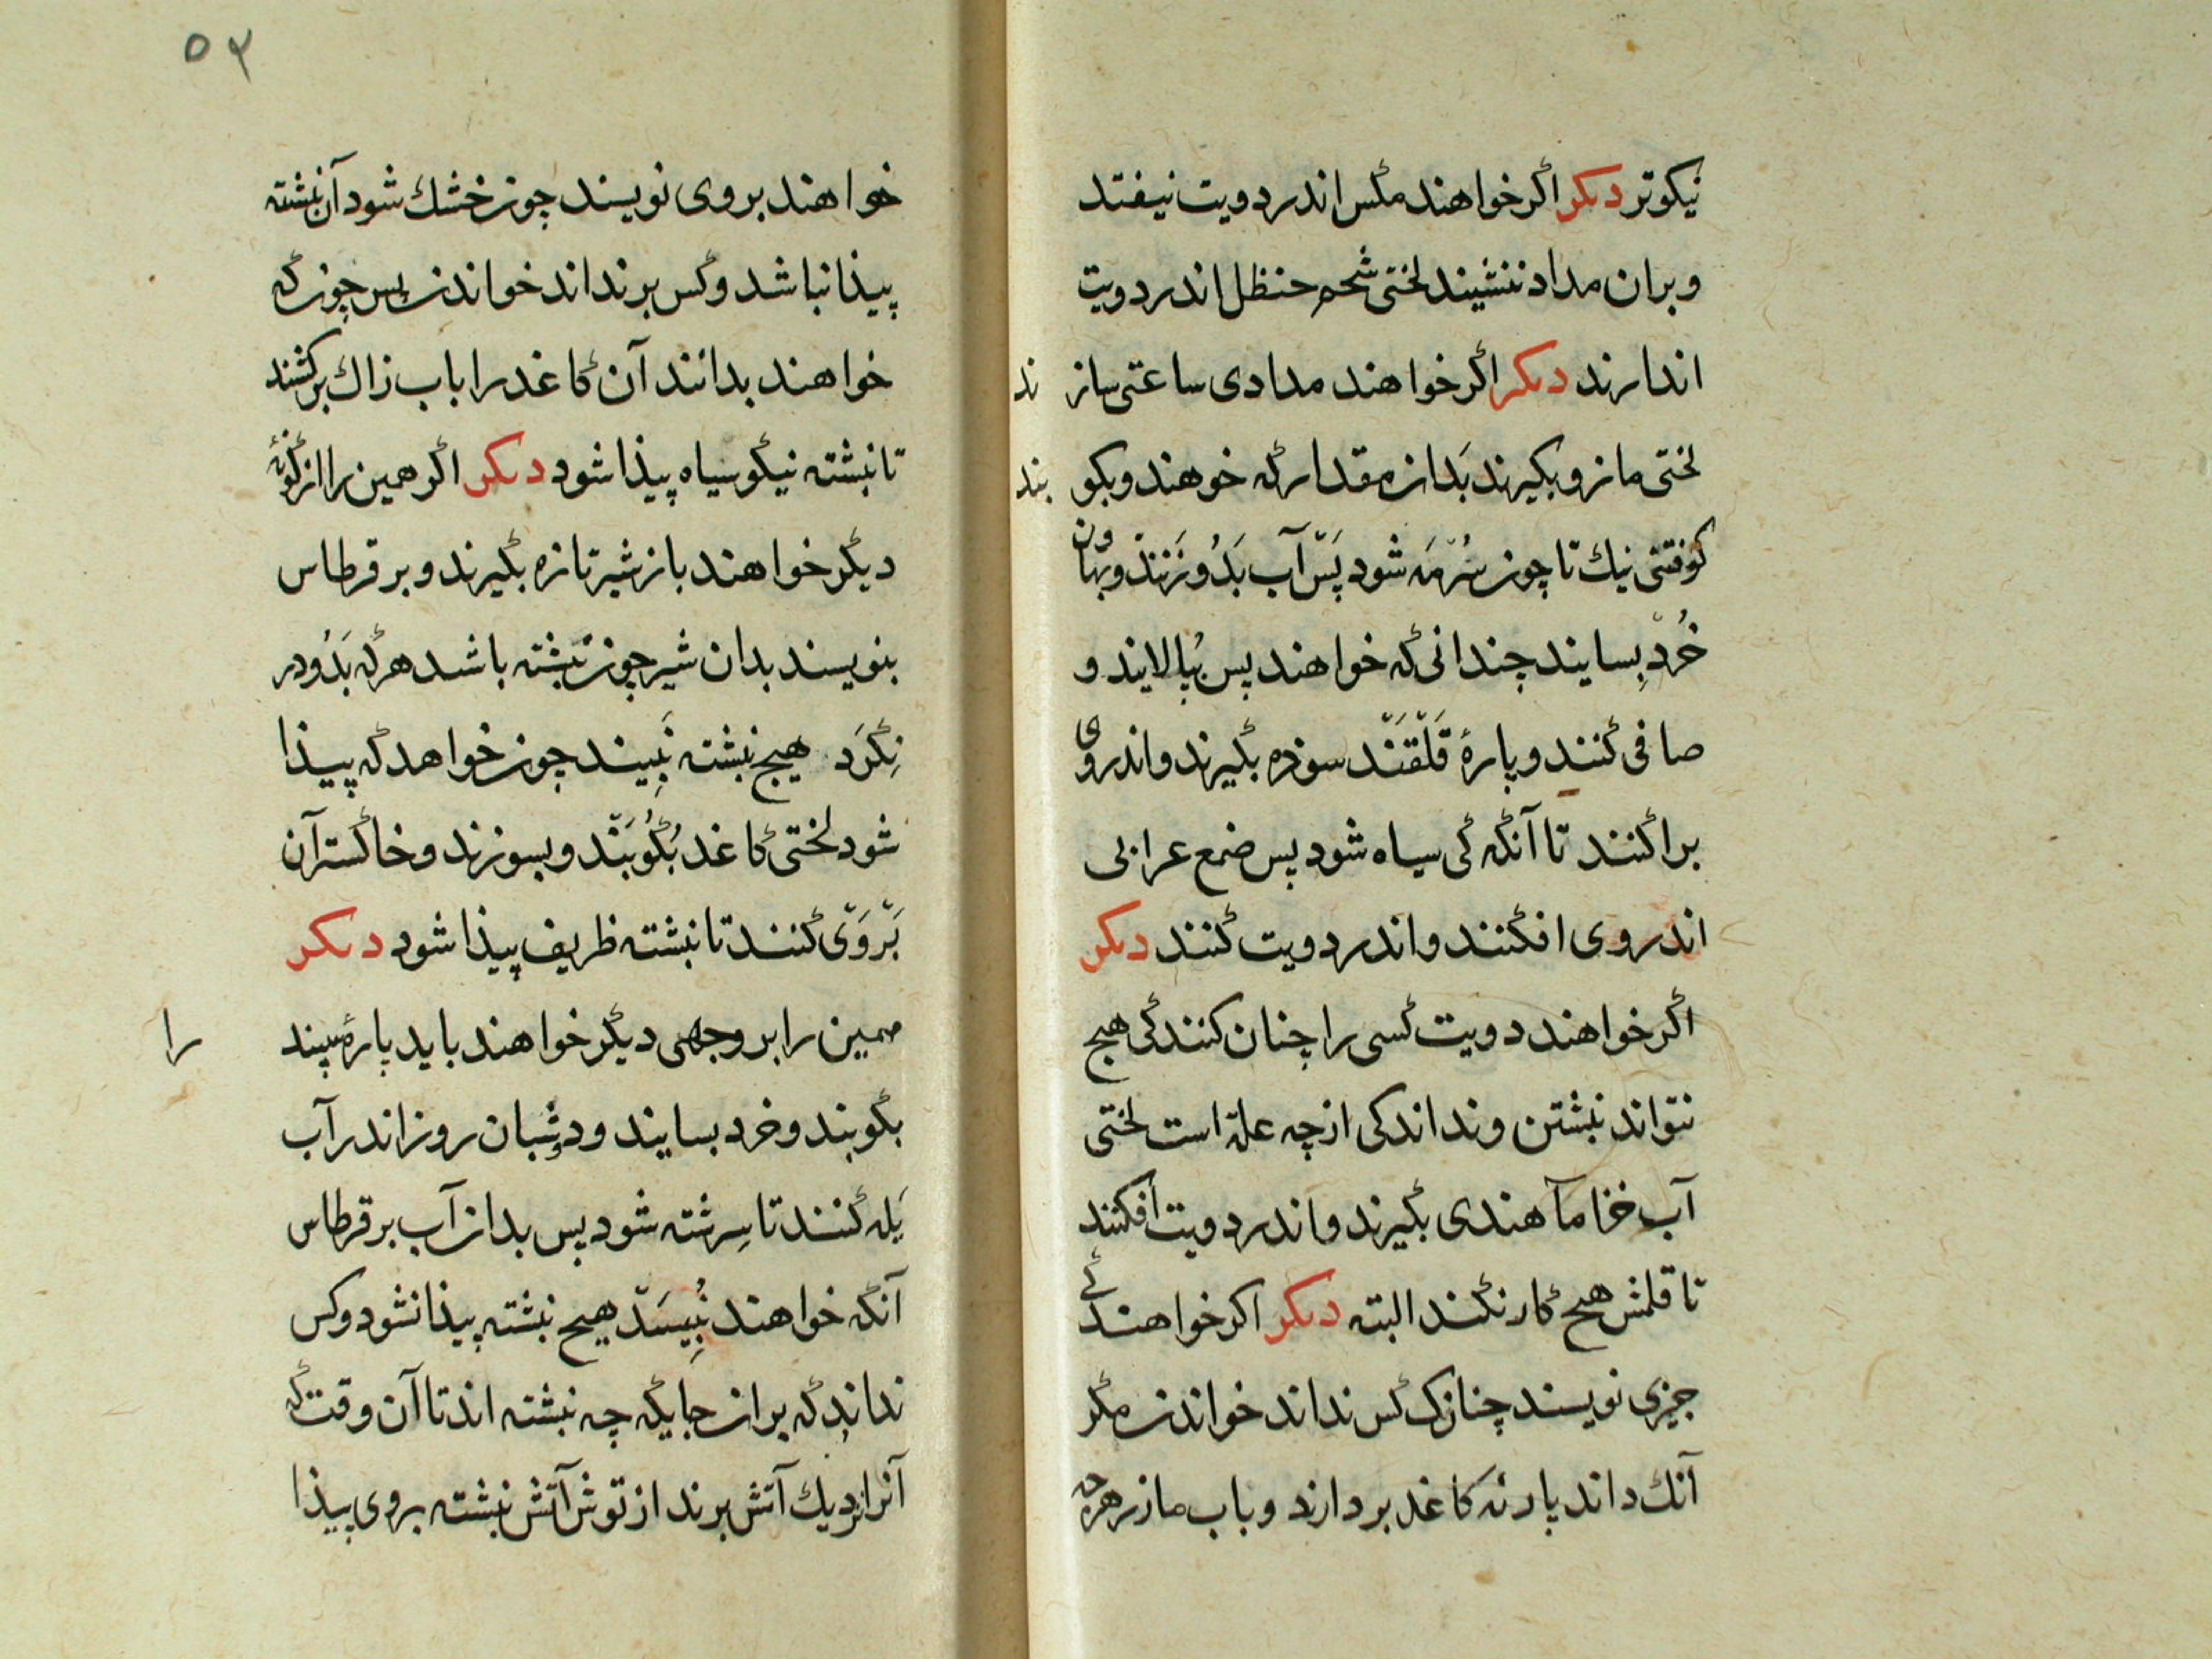 نیکوتر دیکر اکر خواهند مکس اندر دویت نیفتد
و بران مداد ننشیند لختی شحم حنظل اندر دویت
اندارند دیکر اکر خواهند مدادی ساعتی سازند
لختی مازو بکیرند بَدان مقدار که خوهند و بکوبند
کوفتنی نیك تا چون سُرمَه شود پَس آب بَدُو زَنند و بهاون
خُرد بِسایند چندانی که خواهند پس بُپالایند و
صافی کنند و پارهٔ قَلَقَند سوده بکیرند و اندر وی
براکنند تا آنکه کی سیاه شود پس صمغ عرابی
اندر وی افکنند و اندر دویت کنند دیکر
اکر خواهند دویت کسی را چنان کنند کی هیچ
نتواند نبشتن و نداند کی از چه علة است لختی
آب خاما هندی بکیرند و اندر دویت افکنند
تا قلمش هیچ کار نکند البته دیکر اکر خواهند کی
چیزی نویسند چنانك کس نداند خواندن مکر
آنك داند پارئه کاغد بردارند و باب مازر هرچه
٥٢
خواهند بر وی نویسند چون خشك شود آن نبشته
پیذا نباشد و کس بر نداند خواندن پس چون که
خواهند بدانند آن کاغد را باب زاك برکشند
تا نبشته نیکو سیاه پیذا شود دیکر اکر همین را از کونهٔ
دیکر خواهند باز شیر تازه بکیرند و بر قرطاس
بنویسند بدان شیر چون نبشته باشد هر که بَدُو در
نِکَرَد هیچ نبشته نَبِیند چون خواهد که پیذا
شود لختی کاغد بُکُوبَند و بسوزند و خاکستر آن
بَروَی کنند تا نبشته ظریف پیذا شود دیکر
همین را بر وجهی دیکر خواهند باید پارهٔ سپند را
بکوبند و خرد بسایند و دو شبان روز اندر آب
یَله کنند تا سِرشته شود پس بدان آب بر قرطاس
آنکه خواهند نُبِیسَد هیچ نبشته پیذا نشود و کس
نداند که بران جایکه چه نبشته اند تا آن وقت که
آنرا نزدیك آتش برند از توش آتش نبشته بر وی پیذا